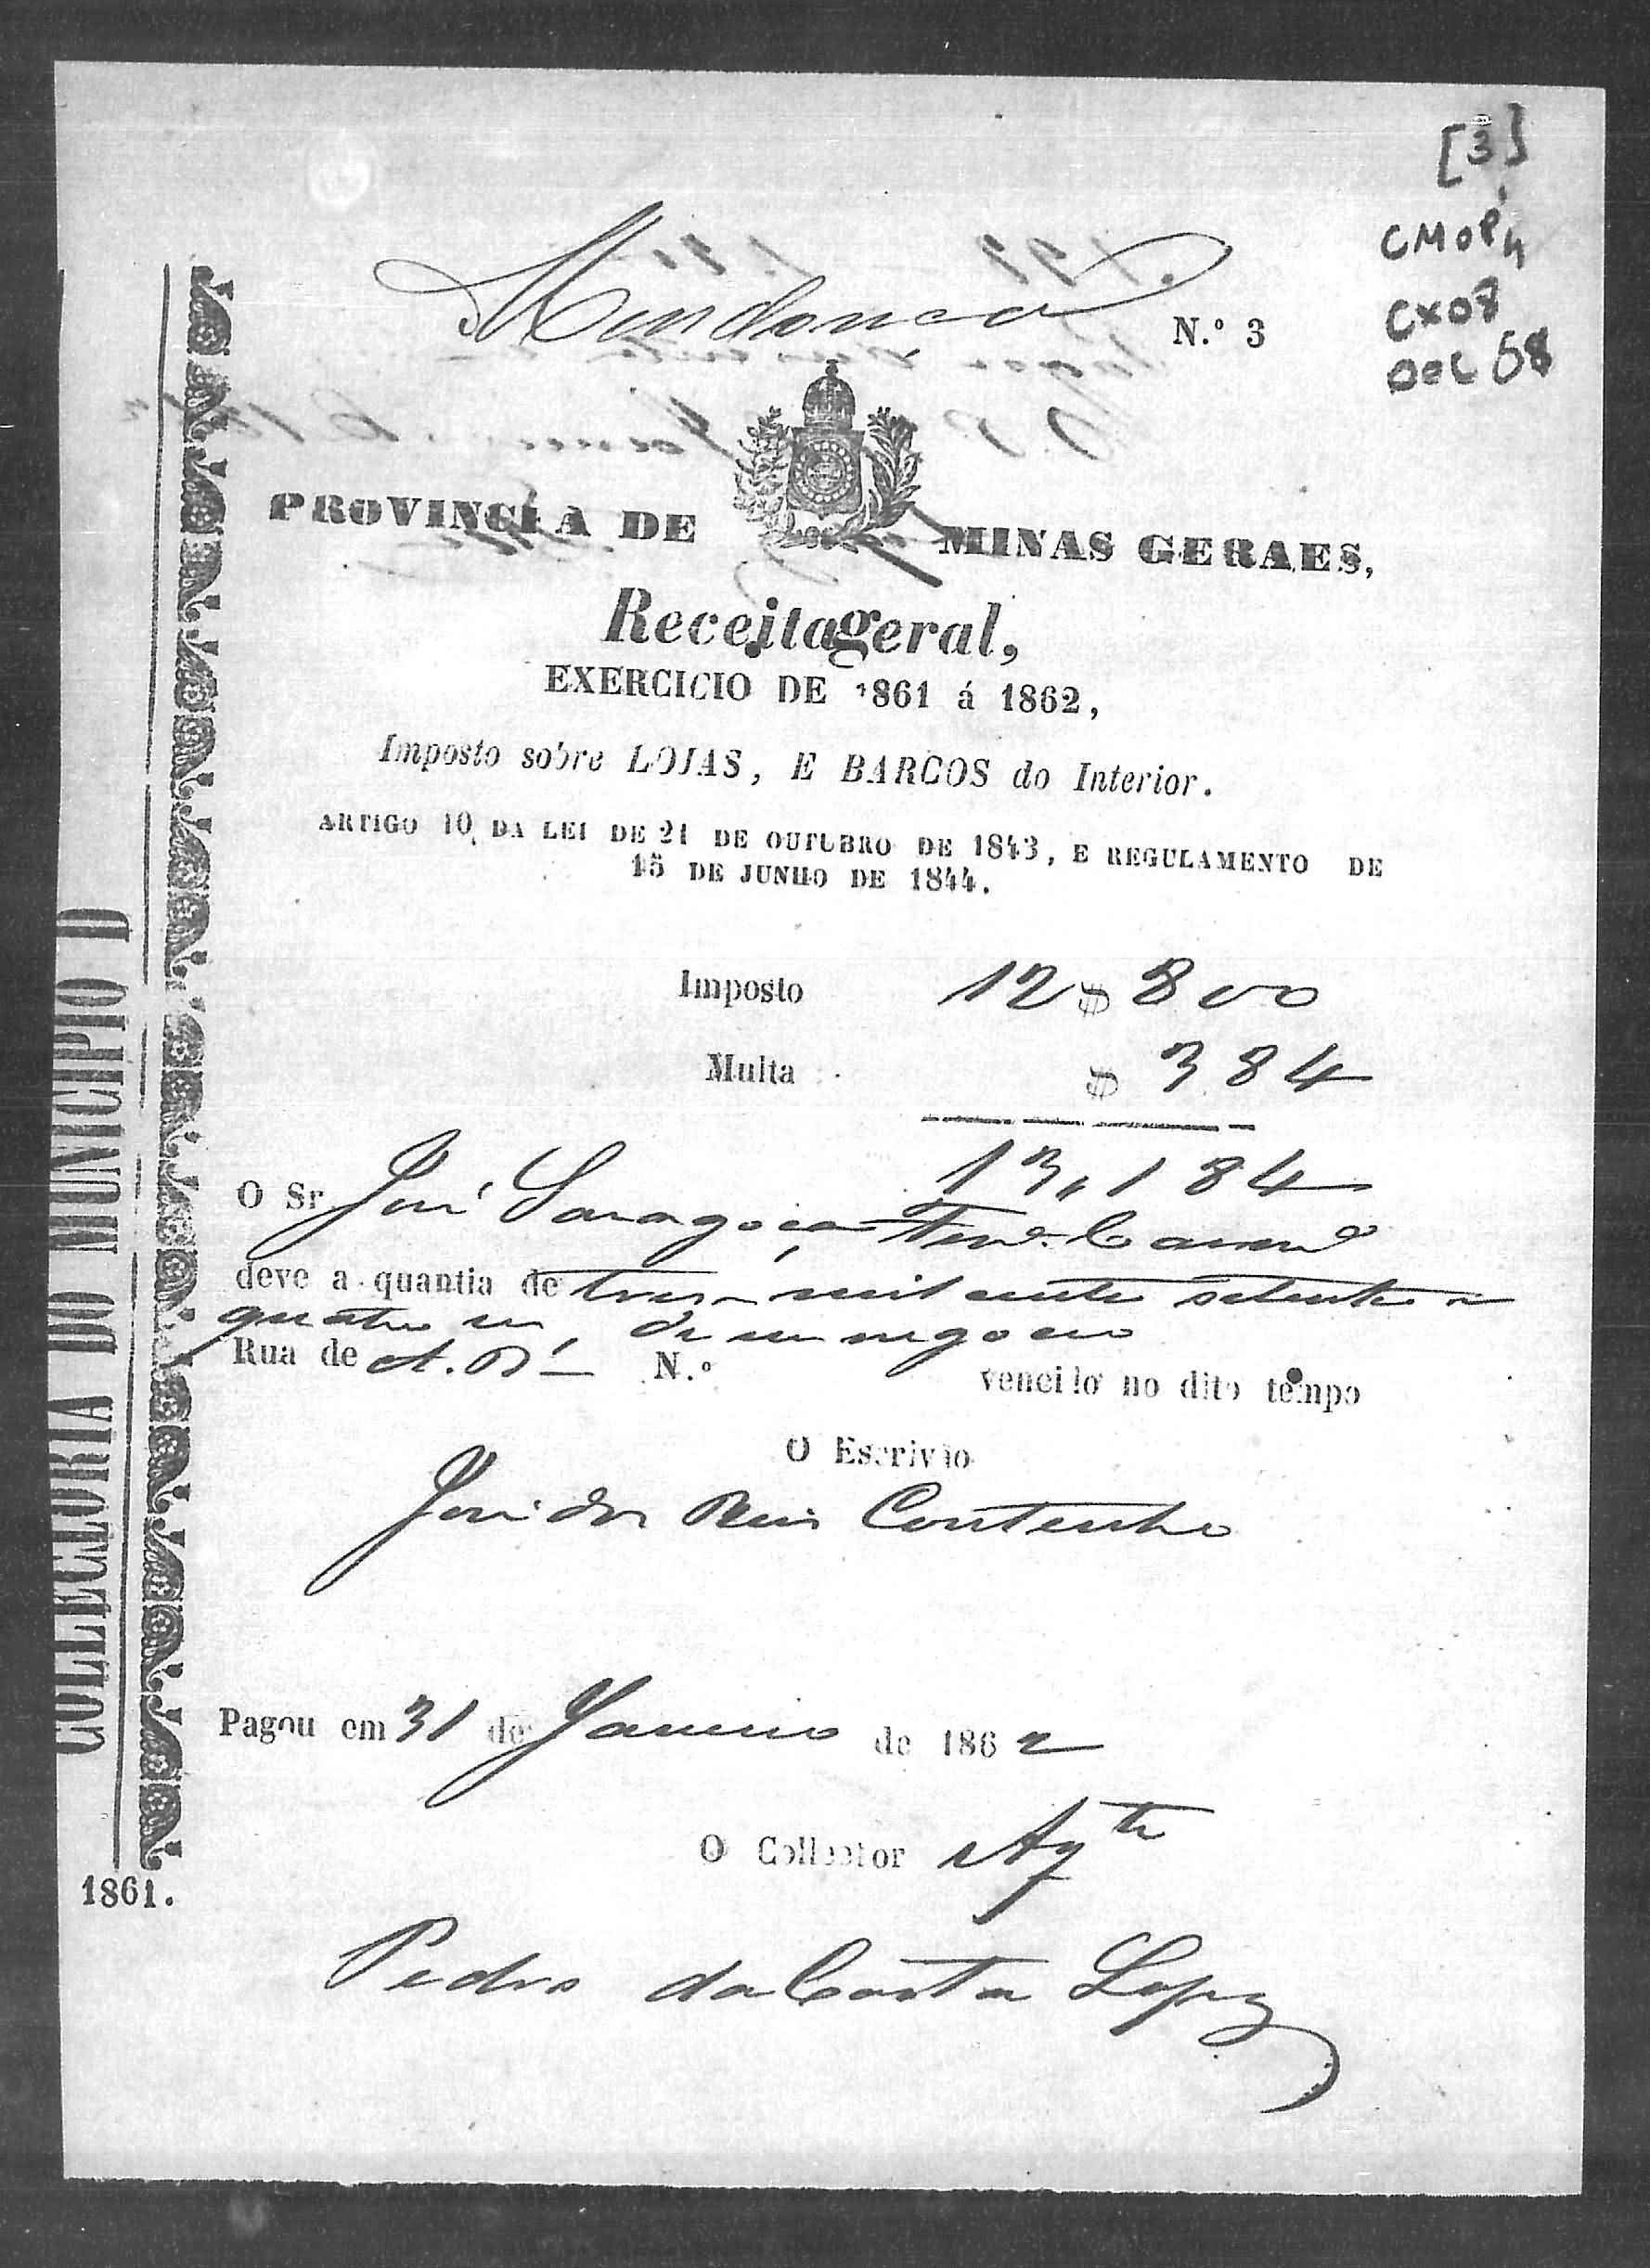 [3]
CMOP
CX08
DOC 58
Mendonça
N.º 3
PROVINCIA DE MINAS GERAES,
Receita geral,
EXERCICIO DE 1861 á 1862,
Imposto sobre LOJAS, E BARCOS do Interior.
ARTIGO 10 DA LEI DE 21 DE OUTUBRO DE 1843, E REGULAMENTO DE
15 DE JUNHO DE 1844.
Imposto 12$800
Multa $384
13,184
O Sr José
deve a quantia de mil cento
quatro de negocio
Rua de N.º vencido no dito tempo
O Escrivão
José dos Reis Coutinho
Pagou em 31 de Janeiro de 1862
O Collector Ag.te
Pedro da Costa Lopes
COLLECTORIA DO MUNICIPIO D
1861.